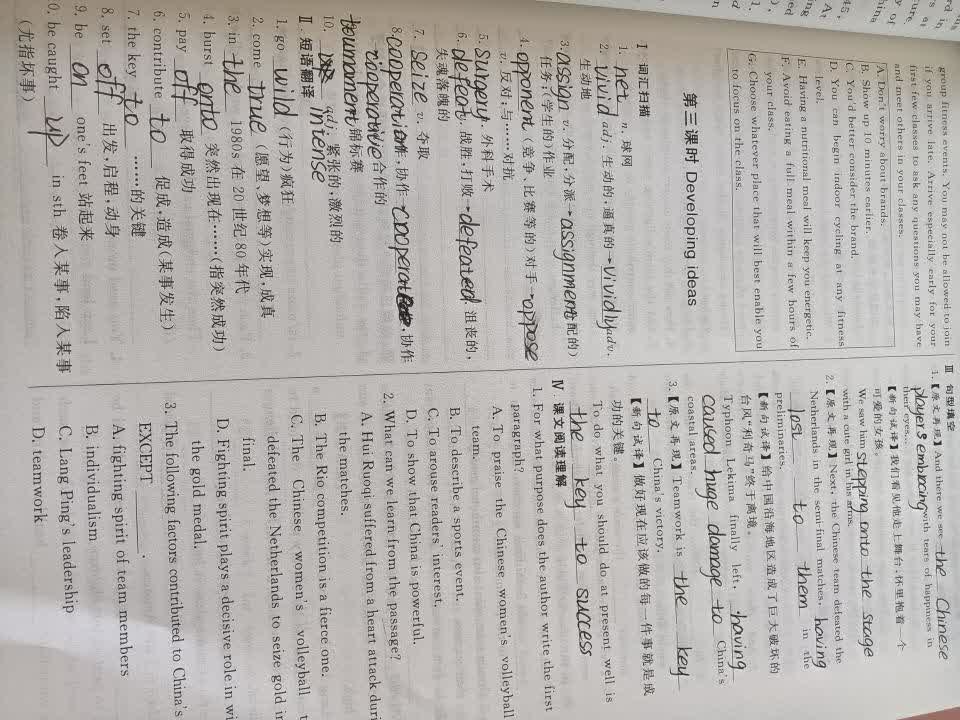 group fitness events. You may not be allowed to join
if you arrive late. Arrive especially early for your
first few classes to ask any questions you may have
and meet others in your classes.
A. Don't worry about brands.
B. Show up 10 minutes earlier.
C. You'd better consider the brand.
D. You can begin indoor cycling at any fitness
level.
E. Having a nutritional meal will keep you energetic.
F. Avoid eating a full meal within a few hours of
your class.
G. Choose whatever place that will best enable you
to focus on the class.
第三课时 Developing ideas
Ⅰ 词汇扫描
1. net n. 球网
2. vivid adj. 生动的,逼真的→vividly adv.
生动地
3. assign v. 分配,分派→assignment(分配的)
任务;(学生的)作业
4. opponent(竞争、比赛等的)对手→oppose
v. 反对;与……对抗
5. surgery 外科手术
6. defeat v. 战胜,打败→defeated 沮丧的,
失魂落魄的
7. seize v. 夺取
8. cooperation 协作→cooperate v. 协作
cooperative 合作的
tournament 锦标赛
10. intense adj. 紧张的,激烈的
Ⅱ 短语翻译
1. go wild (行为)疯狂
2. come true (愿望、梦想等)实现,成真
3. in the 1980s 在 20 世纪 80 年代
4. burst onto 突然出现在……(指突然成功)
5. pay off 取得成功
6. contribute to 促成,造成(某事发生)
7. the key to ……的关键
8. set off 出发,启程,动身
9. be on one's feet 站起来
0. be caught up in sth 卷入某事,陷入某事
(尤指坏事)
Ⅲ 句型填空
1.【原文再现】And there we see the Chinese
players embracing with tears of happiness in
their eyes...
【新句试译】我们看见他走上舞台,怀里抱着一个
可爱的女孩。
We saw him stepping onto the stage
with a cute girl in his arms.
2.【原文再现】Next, the Chinese team defeated the
Netherlands in the semi-final matches, having
lost to them in the
preliminaries.
【新句试译】给中国沿海地区造成了巨大破坏的
台风“利奇马”终于离境。
Typhoon Lekima finally left, having
caused huge damage to China's
coastal areas.
3.【原文再现】Teamwork is the key
to China's victory.
【新句试译】做好现在应该做的每一件事就是成
功的关键。
To do what you should do at present well is
the key to success
Ⅳ 课文阅读理解
1. For what purpose does the author write the first
paragraph?
A. To praise the Chinese women's volleyball
team.
B. To describe a sports event.
C. To arouse readers' interest.
D. To show that China is powerful.
2. What can we learn from the passage?
A. Hui Ruoqi suffered from a heart attack
the matches.
B. The Rio competition is a fierce one.
C. The Chinese women's volleyball
defeated the Netherlands to seize gold
final.
D. Fighting spirit plays a decisive role in
the gold medal.
3. The following factors contributed to China's
EXCEPT ______.
A. fighting spirit of team members
B. individualism
C. Lang Ping's leadership
D. teamwork